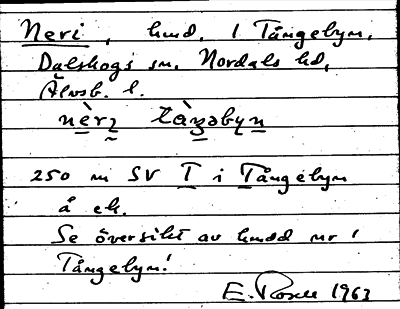 Neri, hmd. 1 Tångebyn,
Dalskogs sn. Nordals hd,
Älvsb. l.
nèrɩ tàŋəbyn
250 m SV T i Tångebyn
å ek.
Se översikt av hmdd nr 1
Tångebyn!
E. Rosell 1963